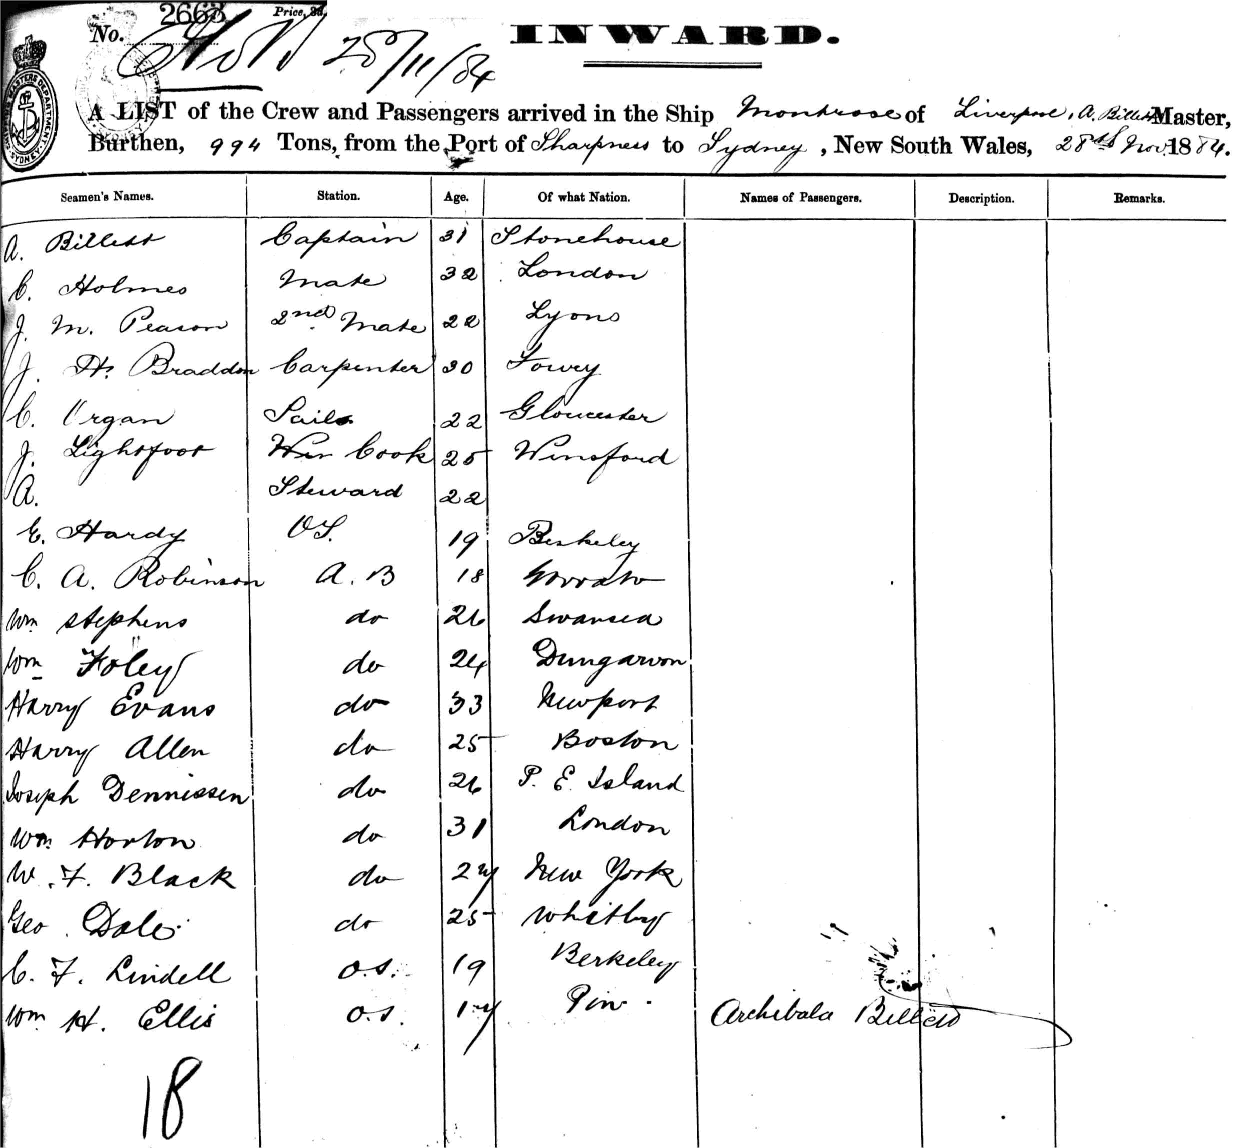 No. 2663 Price, 3d.
INWARD.
28/11/84
A LIST of the Crew and Passengers arrived in the Ship Montrose of Liverpool, A. Billett Master,
Burthen, 994 Tons, from the Port of Sharpness to Sydney, New South Wales, 28th Nov. 1884.
Seamen's Names. Station. Age. Of what Nation. Names of Passengers. Description. Remarks.
A. Billett Captain 31 Stonehouse
C. Holmes Mate 32 London
J. M. Pearson 2nd Mate 22 Lyons
J. H. Braddon Carpenter 30 Fowey
C. Organ Sails 22 Gloucester
J. Lightfoot Cook 25 Winsford
A. Steward 22
E. Hardy OS. 19 Berkeley
C. A. Robinson A. B 18
Wm Stephens do 26 Swansea
Wm Foley do 24 Dungarvon
Harry Evans do 33 Newport
Harry Allen do 25 Boston
Joseph Dennissen do 26 P. E. Island
Wm Horton do 31 London
W. F. Black do 27 New York
Geo Dale do 25 Whitby
C. F. Lindell o.s. 19 Berkeley
Wm H. Ellis o.s. 17 Archibald Billett
18